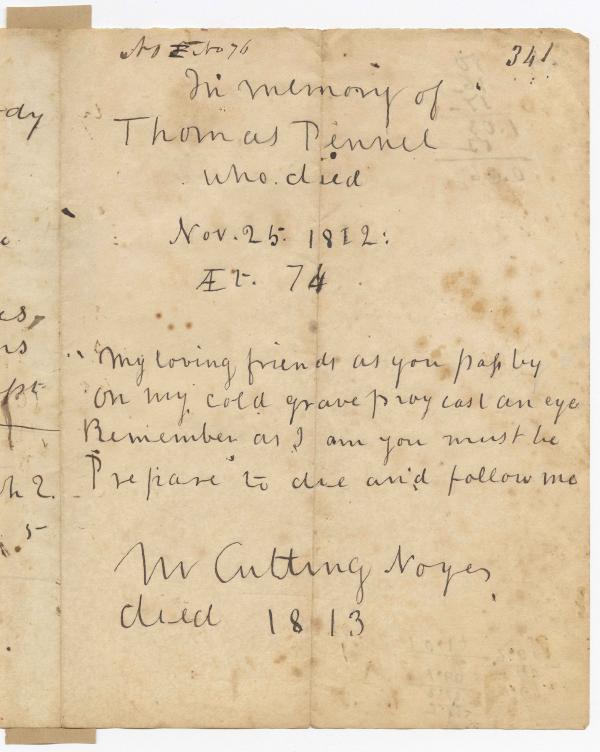 No 76
341.
In memory of
Thomas Pennel
who. died
Nov. 25. 1812:
Æt. 74
My loving friends as you pass by
On my cold grave pray cast an eye
Remember as I am you must be
Prepare to die and follow me
Mr Cutting Noyes
died 1813
dy
es,
rs
h 2.
5